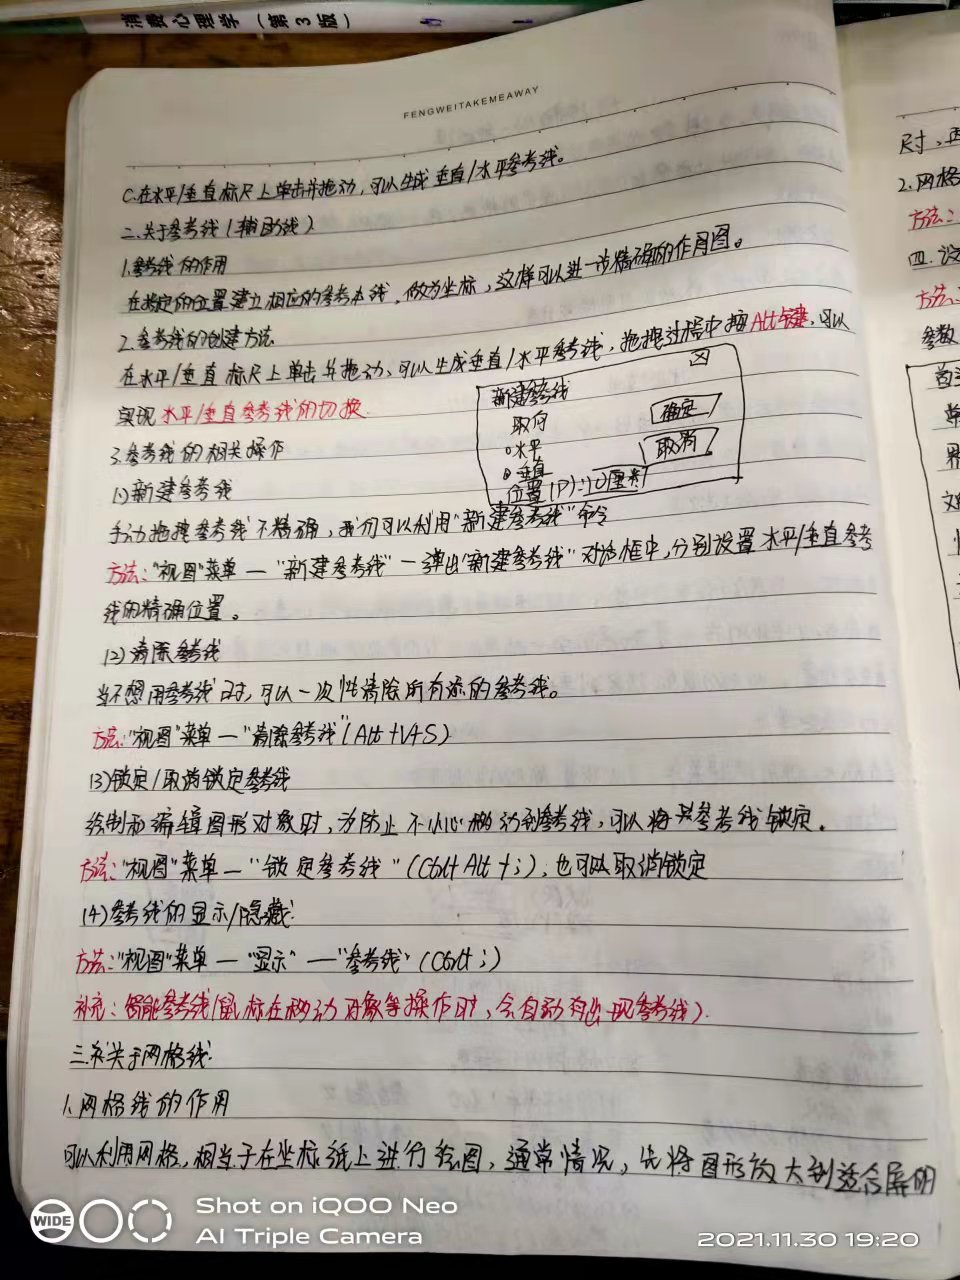 消费心理学（第3版）
FENGWEITAKEMEAWAY
C.在水平/垂直标尺上单击并拖动，可以生成垂直/水平参考线。
二.关于参考线（辅助线）
1.参考线的作用
在指定的位置建立相应的参考本线，做为坐标，这样可以进一步精确的作用图。
2.参考线的创建方法
在水平/垂直标尺上单击并拖动，可以生成垂直/水平参考线，拖拽过程中按Alt键，可以
实现水平/垂直参考线的切换.
新建参考线
取向
确定
○水平
取消
○垂直
位置(P):10厘米
3.参考线的相关操作
(1)新建参考线
手动拖拽参考线不精确，我们可以利用“新建参考线”命令
方法:“视图”菜单—“新建参考线”—弹出“新建参考线”对话框中，分别设置水平/垂直参考
线的精确位置。
(2)清除参考线
当不想用参考线时，可以一次性清除所有添的参考线。
方法:“视图”菜单—“清除参考线”(Alt+V+S)
(3)锁定/取消锁定参考线
绘制和编辑图形对象时，为防止不小心移动到参考线，可以将参考线锁定。
方法:“视图”菜单—“锁定参考线”(Ctrl+Alt+;)，也可以取消锁定
(4)参考线的显示/隐藏:
方法:“视图”菜单—“显示”—“参考线”(Ctrl+;)
补充:智能参考线(鼠标在移动对象等操作时，会自动弹出现参考线).
三.关于网格线:
1.网格线的作用
可以利用网格，相当于在坐标纸上进行绘图，通常情况，先将图形放大到适合屏明
尺寸，再
2.网格
方法:
四.设
方法:
参数
Shot on iQOO Neo
WIDE
AI Triple Camera
2021.11.30 19:20